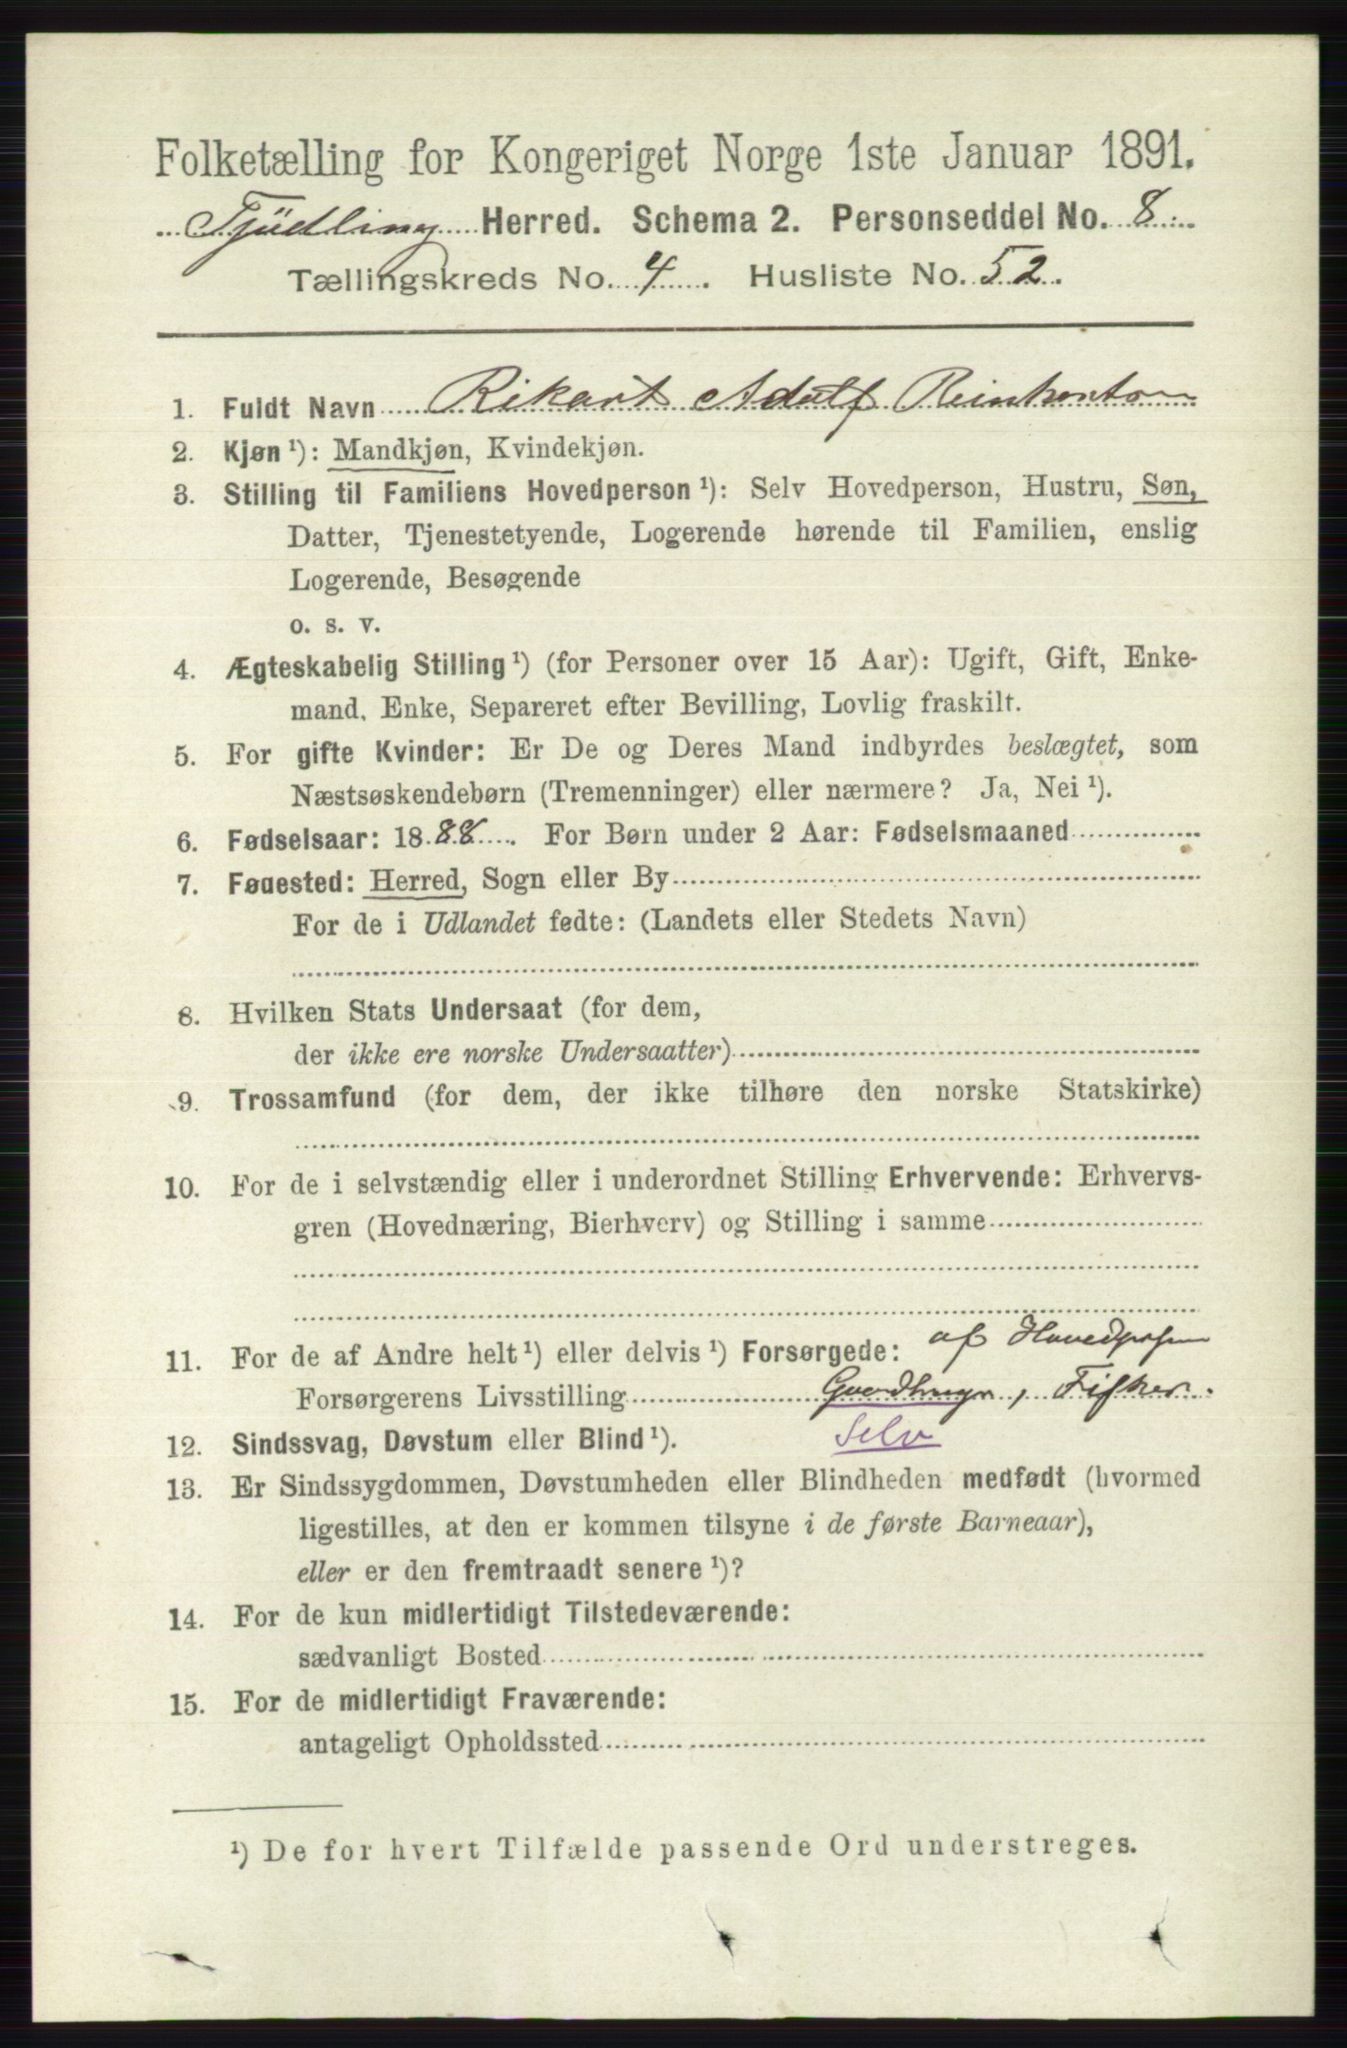 Folketælling for Kongeriget Norge 1ste Januar 1891.
Tjüdling Herred. Schema 2. Personseddel No. 8.
Tællingskreds No. 4. Husliste No. 52.
1. Fuldt Navn Rikart Adulf
2. Kjøn ¹): Mandkjøn, Kvindekjøn.
3. Stilling til Familiens Hovedperson ¹): Selv Hovedperson, Hustru, Søn,
Datter, Tjenestetyende, Logerende hørende til Familien, enslig
Logerende, Besøgende
o. s. v.
4. Ægteskabelig Stilling ¹) (for Personer over 15 Aar): Ugift, Gift, Enke-
mand, Enke, Separeret efter Bevilling, Lovlig fraskilt.
5. For gifte Kvinder: Er De og Deres Mand indbyrdes beslægtet, som
Næstsøskendebørn (Tremenninger) eller nærmere? Ja, Nei ¹).
6. Fødselsaar: 1888. For Børn under 2 Aar: Fødselsmaaned
7. Fødested: Herred, Sogn eller By
For de i Udlandet fødte: (Landets eller Stedets Navn)
8. Hvilken Stats Undersaat (for dem,
der ikke ere norske Undersaatter)
9. Trossamfund (for dem, der ikke tilhøre den norske Statskirke)
10. For de i selvstændig eller i underordnet Stilling Erhvervende: Erhvervs-
gren (Hovednæring, Bierhverv) og Stilling i samme
11. For de af Andre helt ¹) eller delvis ¹) Forsørgede: af Hovedpersen
Forsørgerens Livsstilling Gaardbruger, Fisker.
12. Sindssvag, Døvstum eller Blind ¹). Selv
13. Er Sindssygdommen, Døvstumheden eller Blindheden medfødt (hvormed
ligestilles, at den er kommen tilsyne i de første Barneaar),
eller er den fremtraadt senere ¹)?
14. For de kun midlertidigt Tilstedeværende:
sædvanligt Bosted
15. For de midlertidigt Fraværende:
antageligt Opholdssted
¹) De for hvert Tilfælde passende Ord understreges.